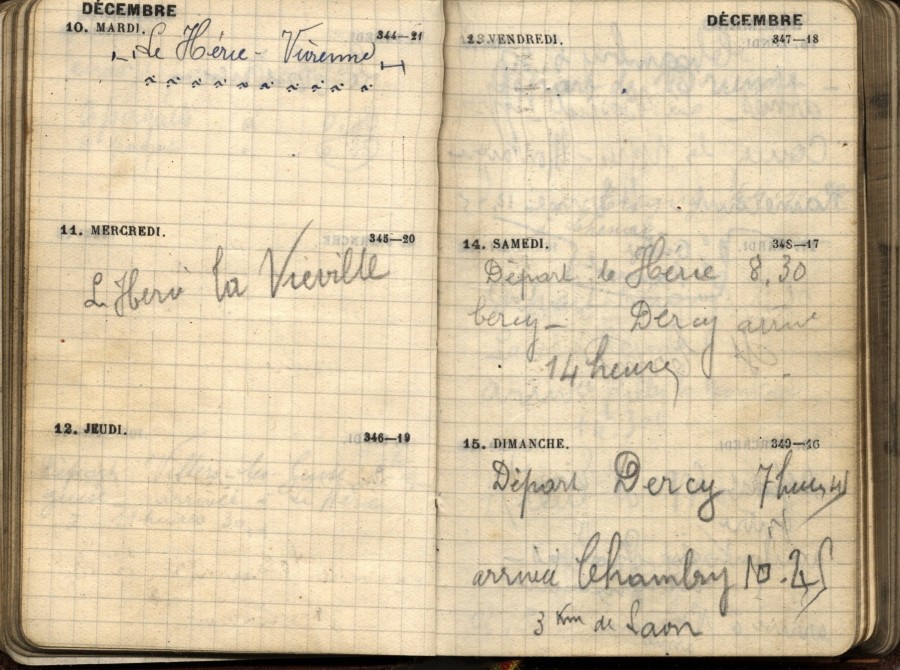 DÉCEMBRE
10. MARDI. 344—21
Le Hérie - Vivenne
11. MERCREDI. 345—20
L Herie la Vieville
12. JEUDI. 346—19
DÉCEMBRE
13. VENDREDI. 347—18
14. SAMEDI. 348—17
Départ le Herie 8,30
bercy - Dercy arrive
14 heures
15. DIMANCHE. 349—16
Départ Dercy 7 heures
arrivée Chambry 10.25
3 Km de Laon